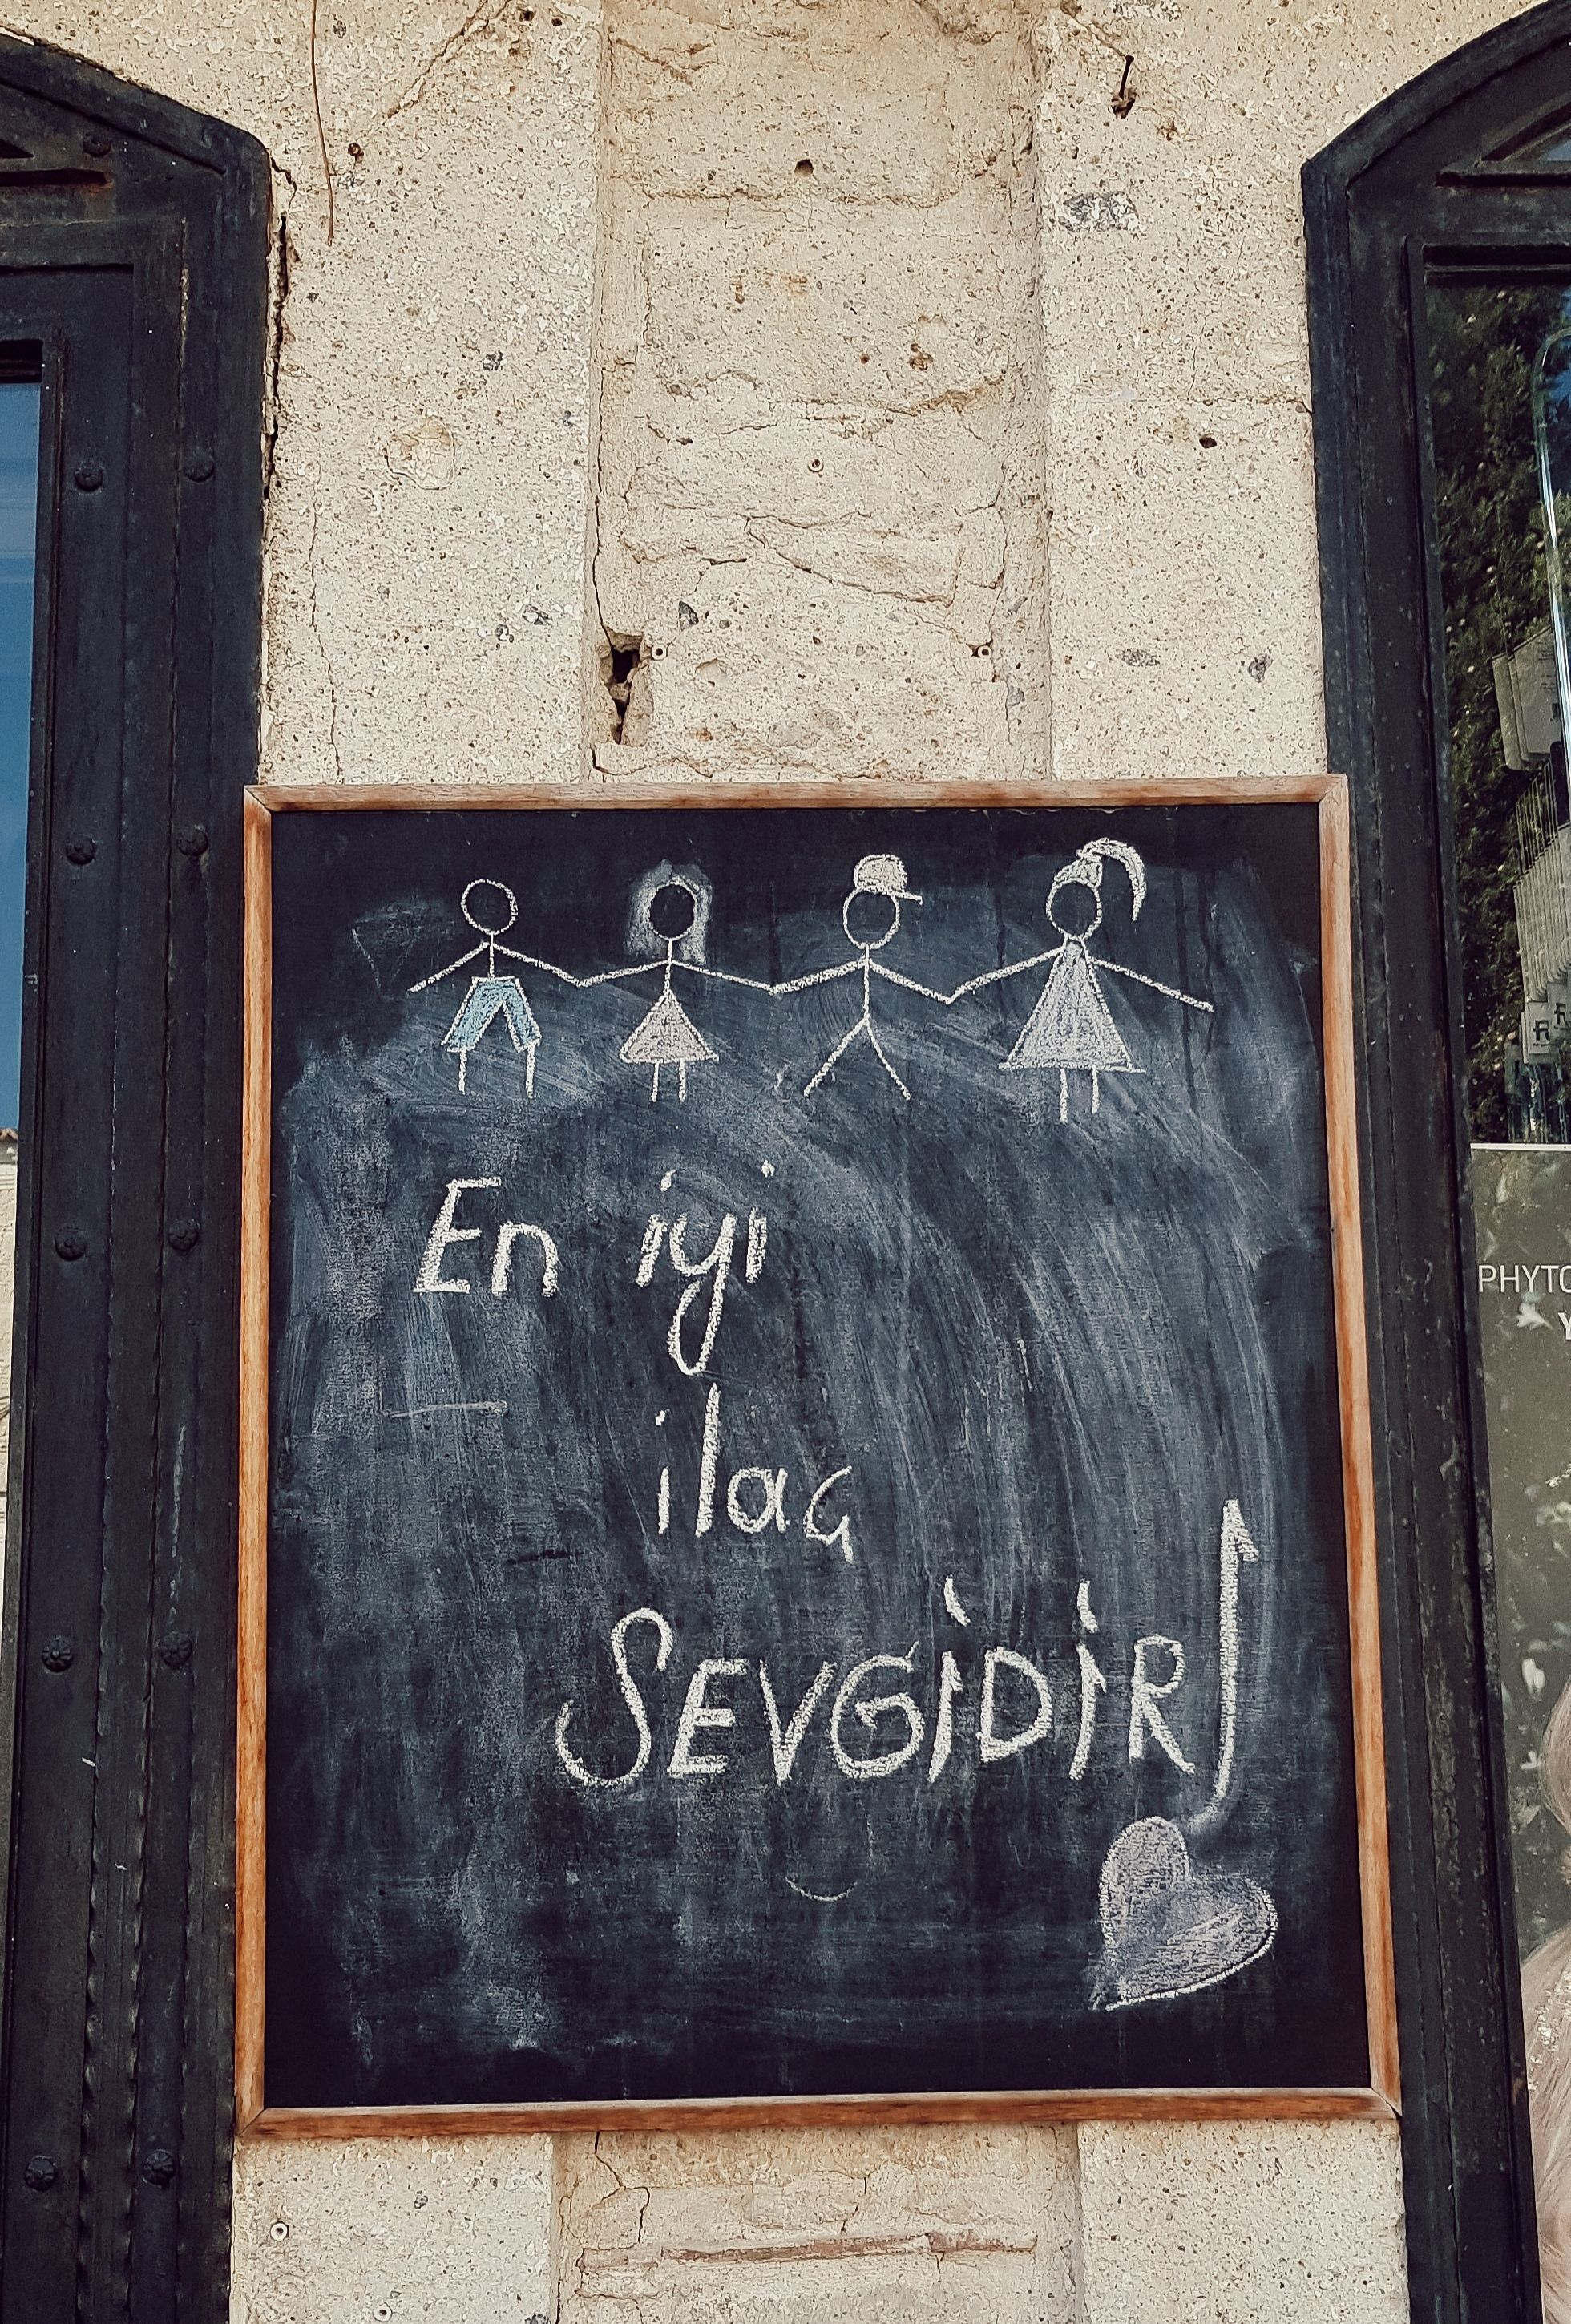 En iyi
ilaç
SEVGİDİR
PHYTO